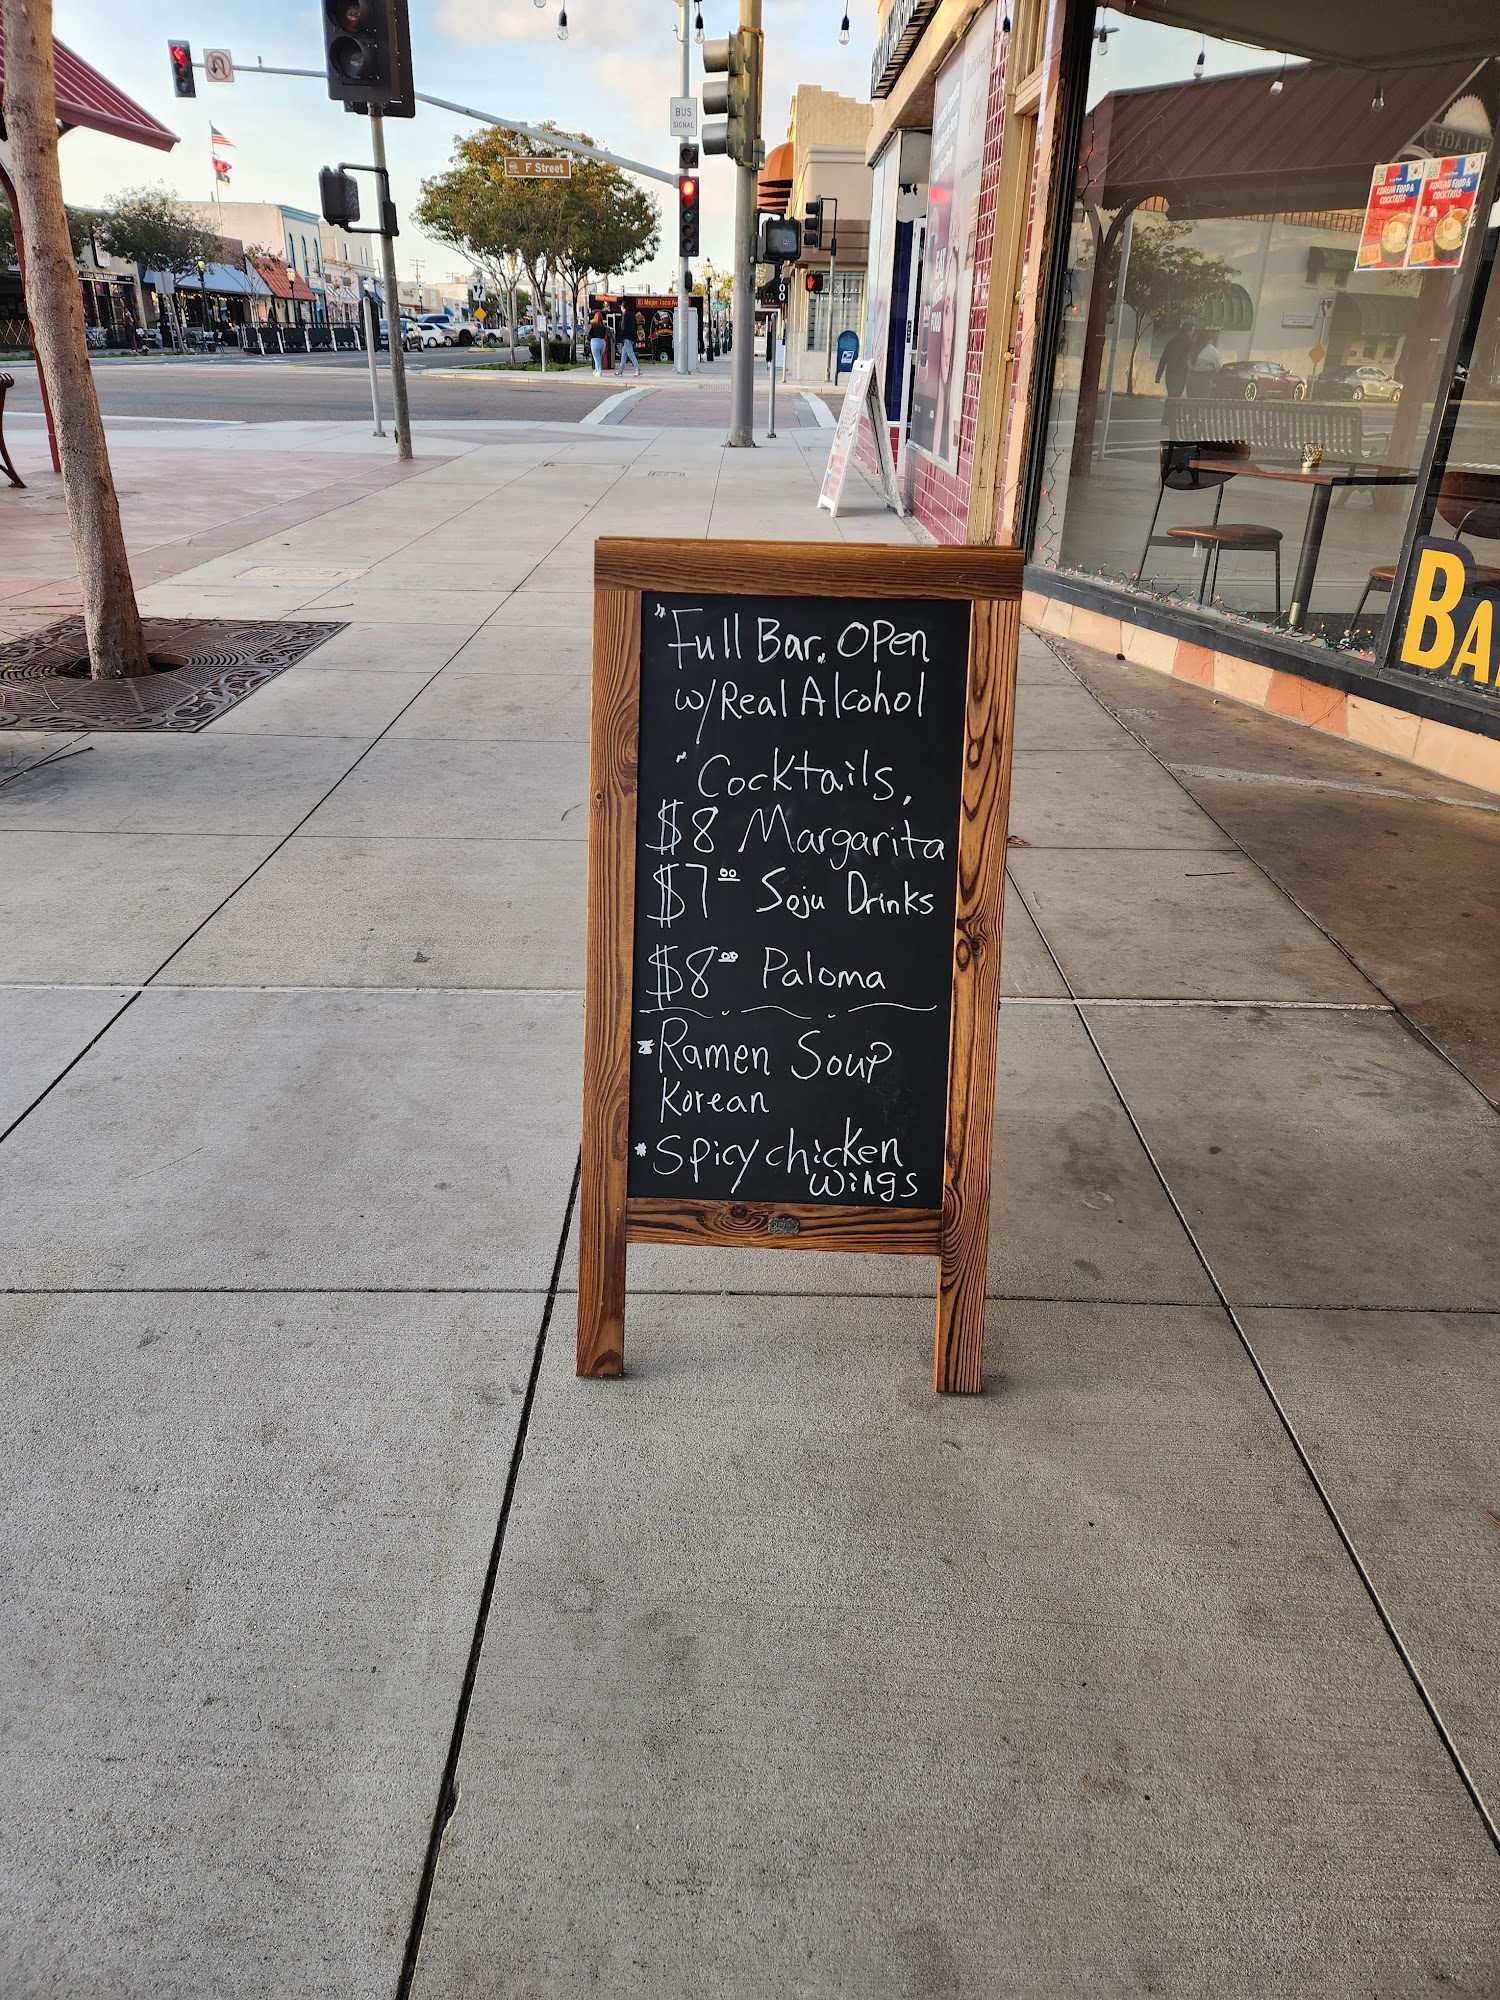 BUS
SIGNAL
F Street
El Mejor Taco
KOREAN FOOD &
COCKTAILS
KOREAN FOOD &
COCKTAILS
BA
"Full Bar. Open
w/Real Alcohol
" Cocktails,
$8 Margarita
$7.00 Soju Drinks
$8.00 Paloma
*Ramen Soup
Korean
*Spicy chicken
wings